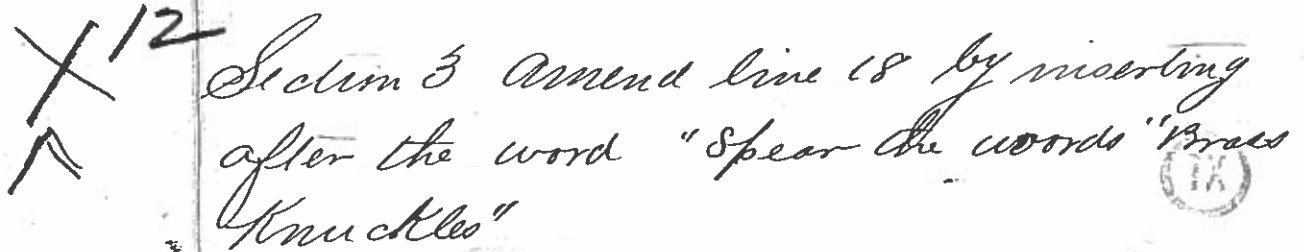 X 12
Section 3 Amend line 18 by inserting
after the word "Spear the words "Brass
Knuckles"